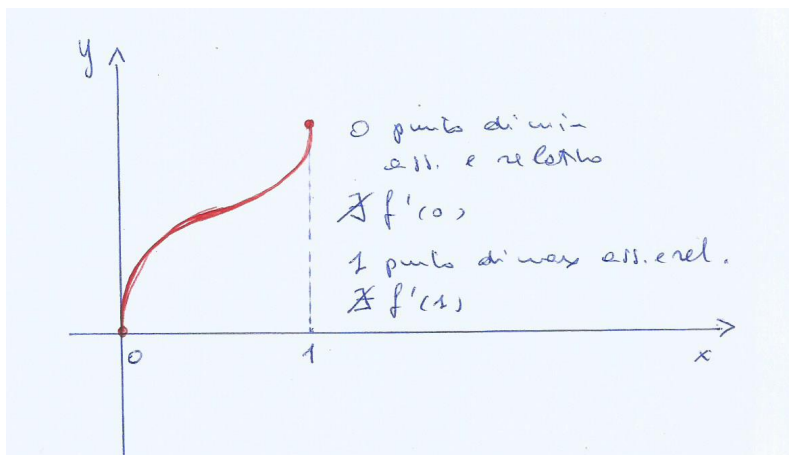 y
0 punto di min
ass. e relativo
∄ f'(0)
1 punto di max ass. e rel.
∄ f'(1)
0 1 x